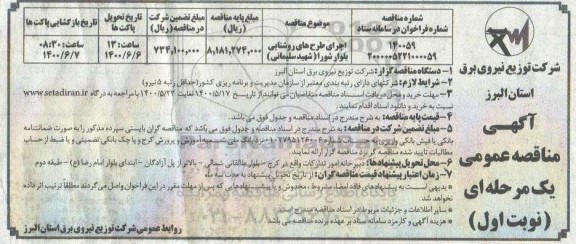 شرکت توزیع نیروی برق
استان البرز
آگهی
مناقصه عمومی
یک مرحله ای
(نوبت اول)
شماره مناقصه
شماره فراخوان در سامانه ستاد
موضوع مناقصه
مبلغ پایه مناقصه (ریال)
مبلغ تضمین شرکت در مناقصه (ریال)
تاریخ تحویل پاکت ها
تاریخ بازگشایی پاکت ها
۱۴۰۰۵۹
۲۰۰۰۰۰۵۲۲۱۰۰۰۰۵۹
اجرای طرح های روشنایی بلوار شورا (شهید سلیمانی)
۸,۱۸۱,۲۷۴,۰۰۰
۷۳۴,۱۰۰,۰۰۰
ساعت: ۱۳
۱۴۰۰/۶/۶
ساعت: ۰۸:۳۰
۱۴۰۰/۶/۷
۱- دستگاه مناقصه گزار: شرکت توزیع نیروی برق استان البرز
۲- شرایط لازم: شرکتهای دارای رتبه بندی معتبر از سازمان مدیریت و برنامه ریزی کشور (حداقل رتبه ۵ نیرو)
۳- مهلت خرید و محل دریافت اسناد مناقصه: متقاضیان می توانند از تاریخ ۱۴۰۰/۵/۱۷ لغایت ۱۴۰۰/۵/۲۳ با مراجعه به درگاه www.setadiran.ir
نسبت به خرید و دانلود اسناد اقدام نمایند.
۴- قیمت پایه مناقصه: به شرح مندرج در اسناد مناقصه و جدول فوق می باشد.
۵- مبلغ تضمین شرکت در مناقصه: به شرح مندرج در اسناد مناقصه و جدول فوق می باشد که مناقصه گران بایستی سپرده مذکور را به صورت ضمانتنامه
بانکی یا فیش بانکی واریزی به
مطالبات تایید شده مناقصه گران نزد شرکت
۶- محل تحویل پیشنهادها: دبیرخانه امور تدارکات واقع در کرج - بلوار طالقانی شمالی - بالاتر از پل آزادگان - ابتدای بلوار امام رضا (ع) - طبقه دوم
۷- زمان اعتبار پیشنهاد قیمت مناقصه گران: از تاریخ تحویل پیشنهاد به مدت سه ماه
* بدیهی است به پیشنهادهای فاقد امضاء، مشروط، مخدوش و یا پیشنهادهایی که پس از مهلت مقرر در این فراخوان واصل می گردند مطلقاً ترتیب اثر داده
نخواهد شد.
* سایر اطلاعات و جزئیات مربوط در اسناد مناقصه مندرج است.
* هزینه آگهی و کارمزد سامانه ستاد بر عهده برنده مناقصه می باشد
روابط عمومی شرکت توزیع نیروی برق استان البرز